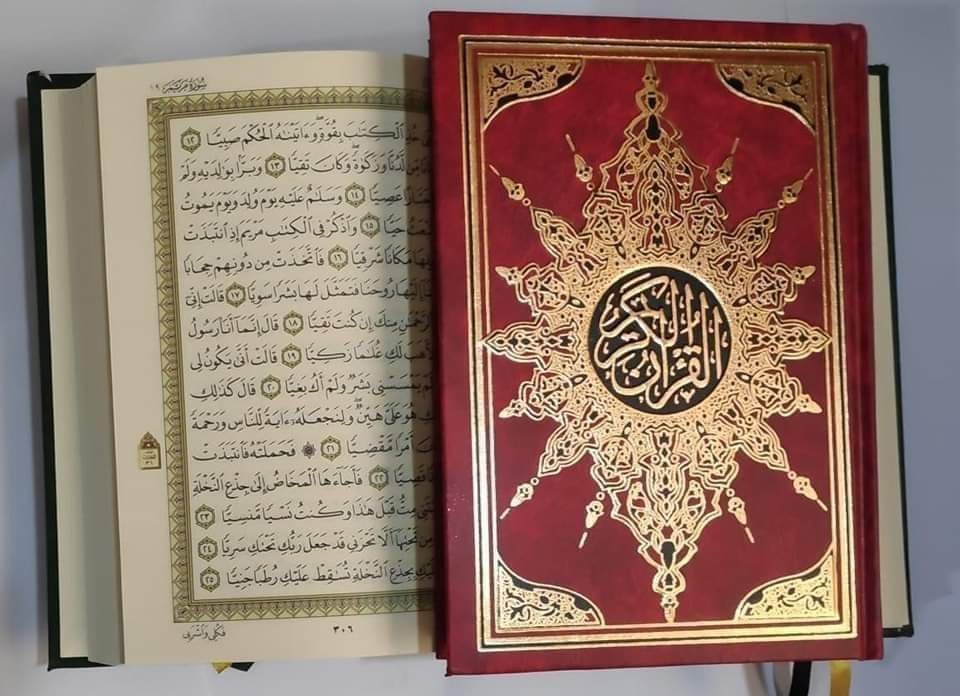 سُورَةُ مَرْيَمَ ١٩
خُذِ ٱلْكِتَٰبَ بِقُوَّةٍ ۖ وَءَاتَيْنَٰهُ ٱلْحُكْمَ صَبِيًّا ١٢
مِّن لَّدُنَّا وَزَكَوٰةً ۖ وَكَانَ تَقِيًّا ١٣ وَبَرًّۢا بِوَٰلِدَيْهِ وَلَمْ
عَصِيًّا ١٤ وَسَلَٰمٌ عَلَيْهِ يَوْمَ وُلِدَ وَيَوْمَ يَمُوتُ
حَيًّا ١٥ وَٱذْكُرْ فِى ٱلْكِتَٰبِ مَرْيَمَ إِذِ ٱنتَبَذَتْ
مَكَانًا شَرْقِيًّا ١٦ فَٱتَّخَذَتْ مِن دُونِهِمْ حِجَابًا
إِلَيْهَا رُوحَنَا فَتَمَثَّلَ لَهَا بَشَرًا سَوِيًّا ١٧ قَالَتْ إِنِّىٓ
مِنكَ إِن كُنتَ تَقِيًّا ١٨ قَالَ إِنَّمَآ أَنَا۠ رَسُولُ
لِأَهَبَ لَكِ غُلَٰمًا زَكِيًّا ١٩ قَالَتْ أَنَّىٰ يَكُونُ لِى
يَمْسَسْنِى بَشَرٌ وَلَمْ أَكُ بَغِيًّا ٢٠ قَالَ كَذَٰلِكِ
هُوَ عَلَىَّ هَيِّنٌ ۖ وَلِنَجْعَلَهُۥٓ ءَايَةً لِّلنَّاسِ وَرَحْمَةً
أَمْرًا مَّقْضِيًّا ٢١ ۞ فَحَمَلَتْهُ فَٱنتَبَذَتْ
قَصِيًّا ٢٢ فَأَجَآءَهَا ٱلْمَخَاضُ إِلَىٰ جِذْعِ ٱلنَّخْلَةِ
مِتُّ قَبْلَ هَٰذَا وَكُنتُ نَسْيًا مَّنسِيًّا ٢٣
مِن تَحْتِهَآ أَلَّا تَحْزَنِى قَدْ جَعَلَ رَبُّكِ تَحْتَكِ سَرِيًّا ٢٤
بِجِذْعِ ٱلنَّخْلَةِ تُسَٰقِطْ عَلَيْكِ رُطَبًا جَنِيًّا ٢٥
٣٠٦
فَكُلِى وَٱشْرَبِى
القرآن الكريم